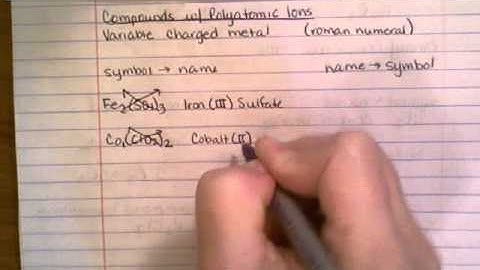 Compounds w/ Polyatomic Ions
Variable charged metal (roman numeral)
symbol → name name → symbol
Fe₂(SO₄)₃ Iron (III) Sulfate
Co₁(ClO₂)₂ Cobalt (II)